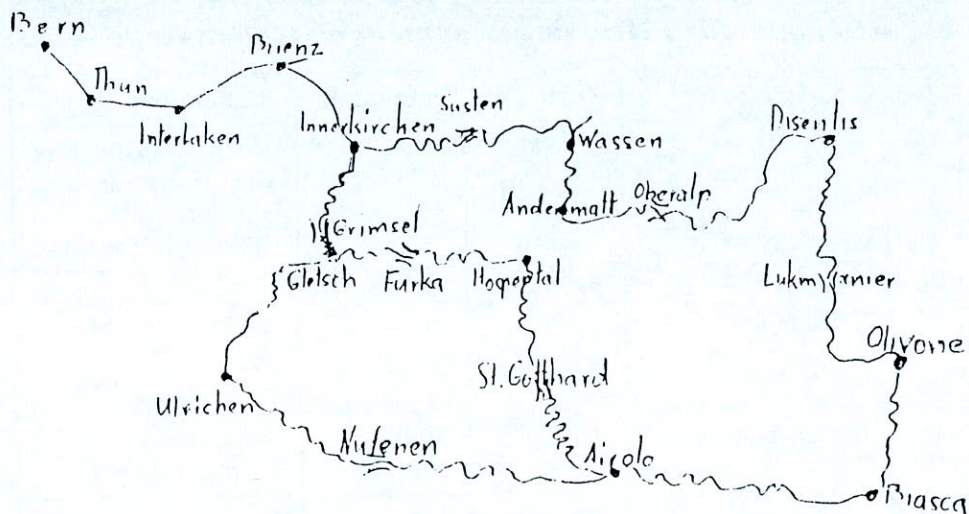 Bern
Brienz
Thun
Interlaken
Innerkirchen
Susten
Wassen
Disentis
Andermatt
Oberalp
Grimsel
Gletsch
Furka
Hospental
Lukmanier
Olivone
St. Gotthard
Ulrichen
Nufenen
Airolo
Biasca